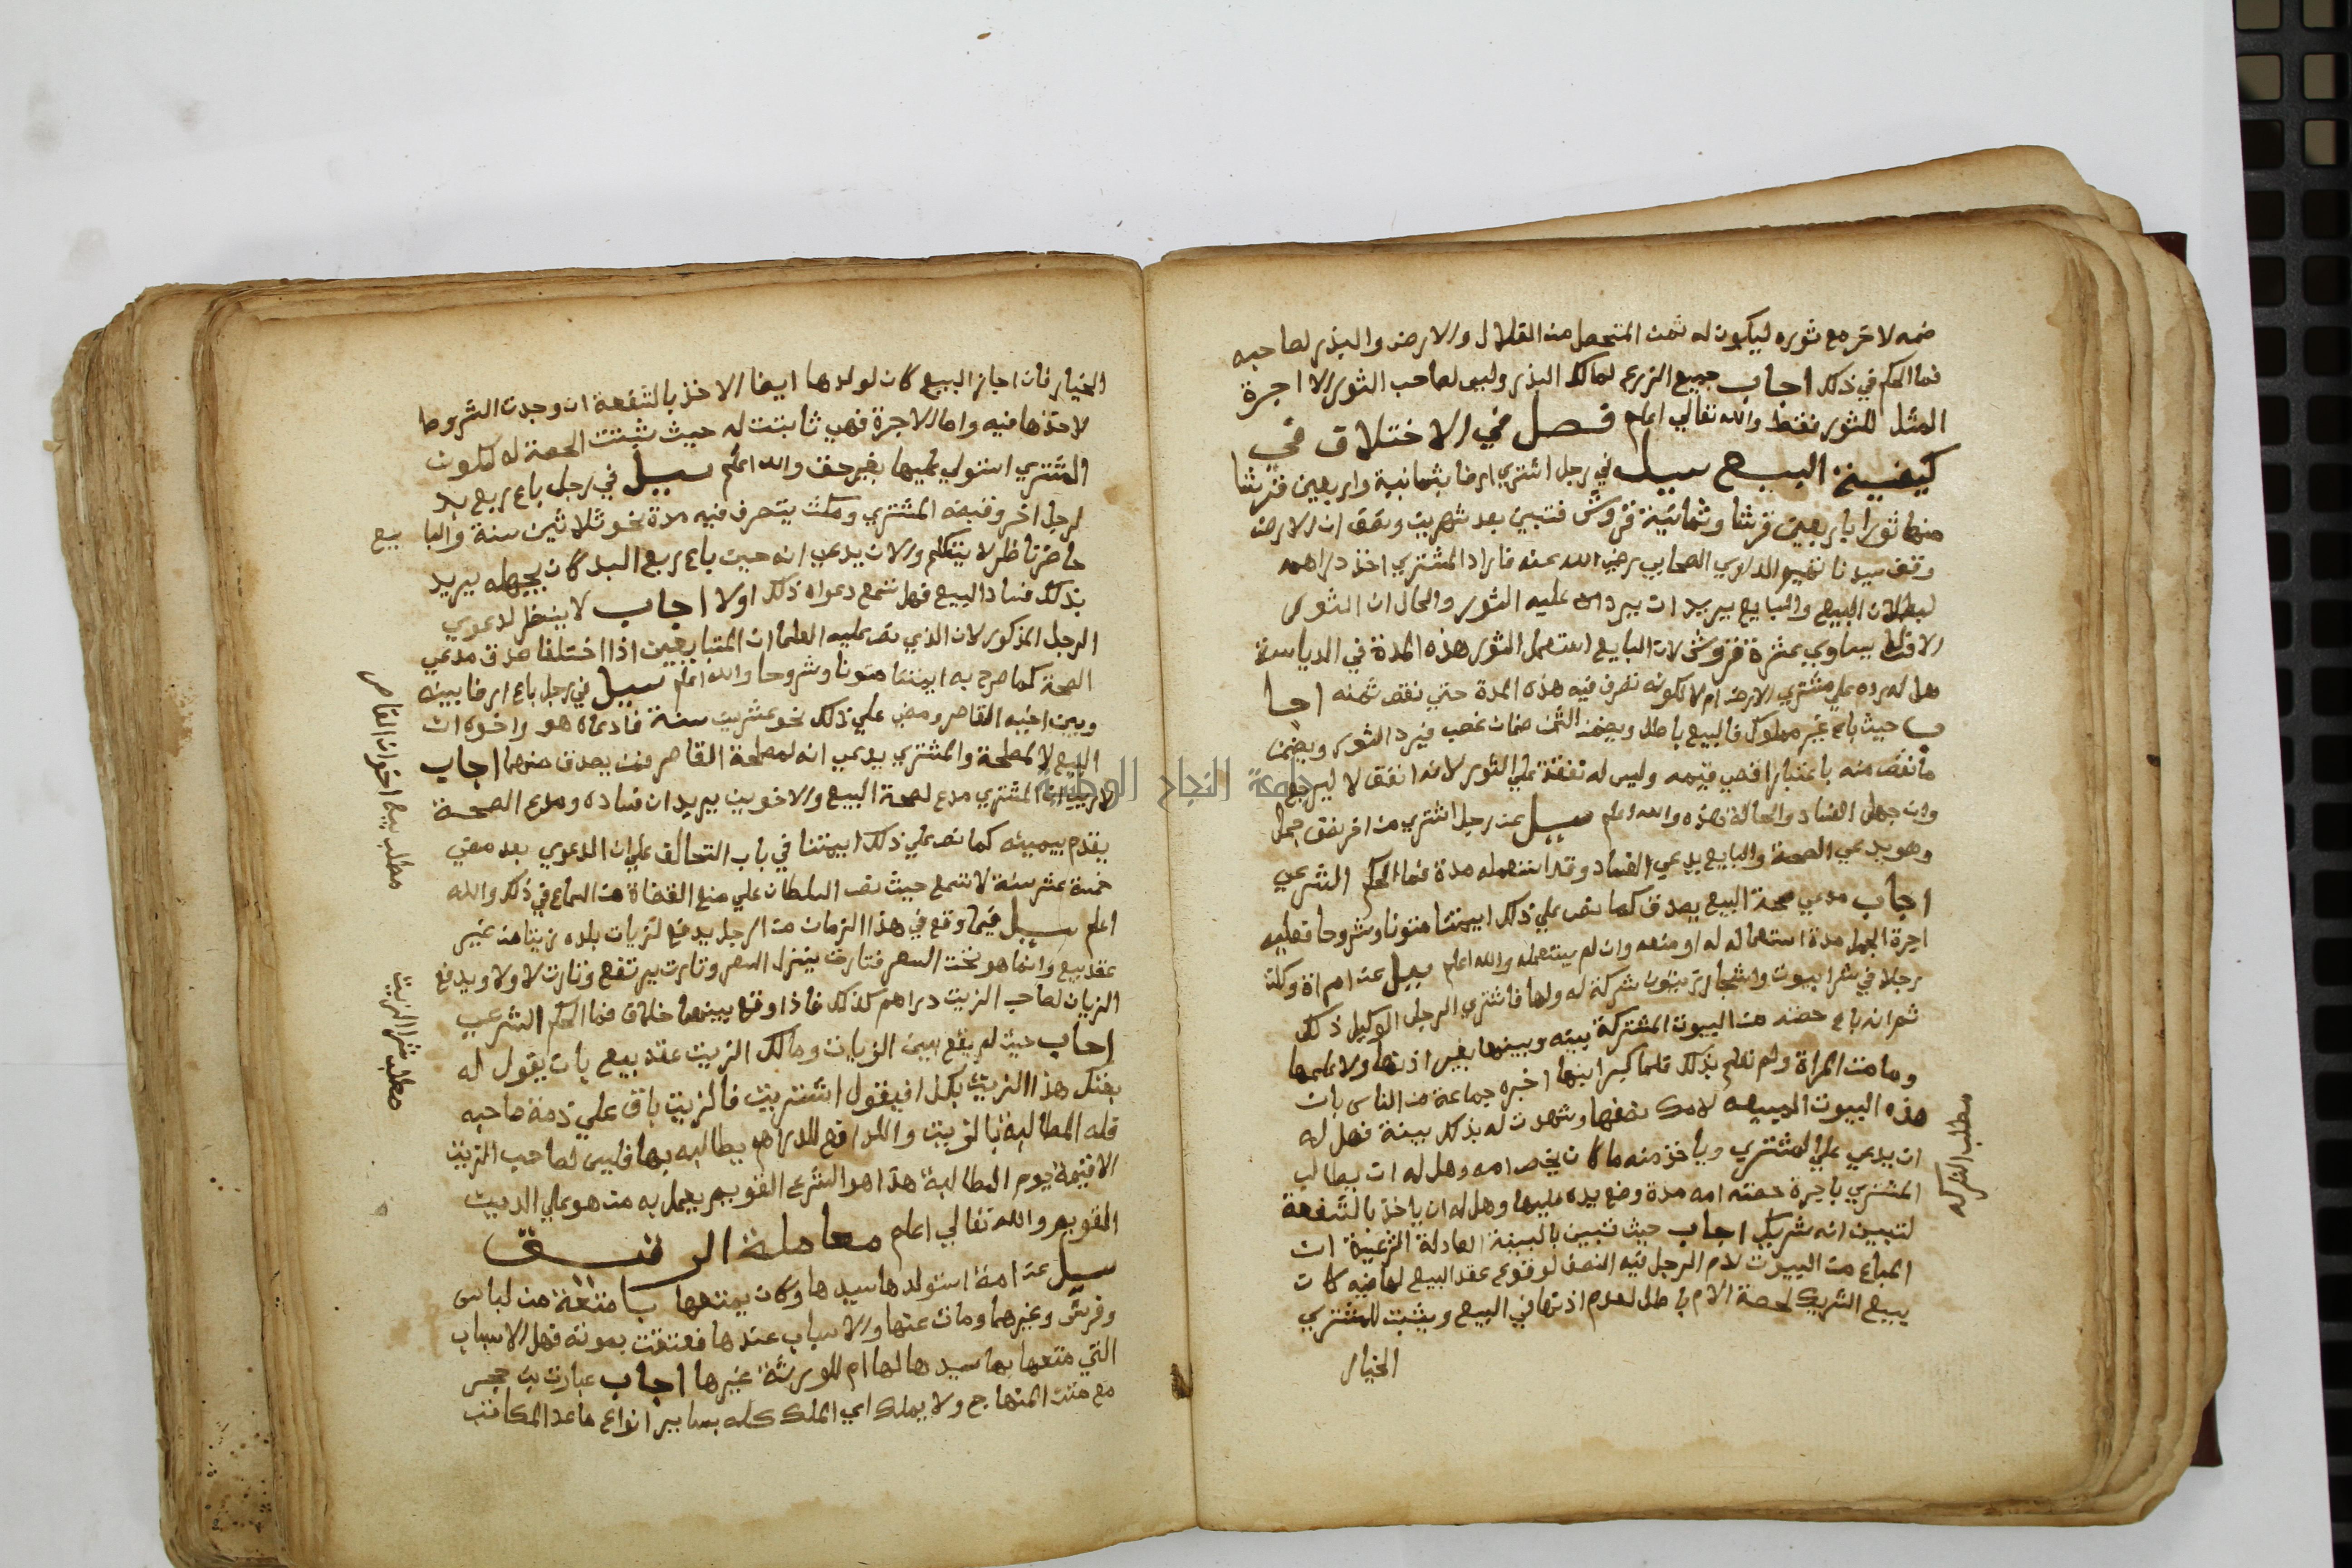 ضمه لاخر مع ثوره ليكون له ثمن المتحصل من الغلال والارض والبذر لصاحبه
فما الحكم في ذلك اجاب جميع الزرع لمالك البذر وليس لصاحب الثور الا اجرة
المثل للثور فقط والله تعالي اعلم فصل في الاختلاف في
كيفية البيع سيل في رجل اشتري ارضا بثمانية واربعين قرشا
منها ثورا باربعين قرشا وثمانية قروش فتبين بعد شهرين وتحقق ان الارض
وقف سيدنا تميم الداري الصحابي رضي الله عنه فاراد المشتري اخذ دراهمه
لبطلان البيع والبايع يريد ان يرد عليه الثور والحال ان الثور
الان يساوي عشرة قروش لان البايع استعمل الثور هذه المدة في الدياسة
هل له رده علي مشتري الارض ام لا لكونه تصرف فيه هذه المدة حتي نقص ثمنه اجا
ب حيث باع غير مملوك فالبيع باطل ويضمن الثمن ضمان غصب فيرد الثور ويضمن
ما نقص منه باعتبار اقصي قيمه وليس له نفقة علي الثور لانه انفق لا ليرجع
وان جهل الفساد والحالة هذه والله اعلم سيل عن رجل اشتري من اخر بقق جمل
وهو يدعي الصحة والبايع يدعي الفساد وقد استعمله مدة فما الحكم الشرعي
اجاب مدعي صحة البيع يصدق كما نص علي ذلك ايمتنا متونا وشروحا فعليه
اجرة الجمل مدة استعماله له او منعه وان لم يستعمله والله اعلم سيل عن امراة وكلت
رجلا في شرا بيوت واشجار زيتون شركة له ولها فاشتري الرجل الوكيل ذلك
ثم انه باع حصته من البيوت المشتركة بينه وبينها بغير اذنها ولا علمها
وماتت المراة ولم تعلم بذلك فلما كبر ابنها اخبره جماعة من الناس بان
هذه البيوت المبيعه لامك نصفها وشهدت له بذلك بينة فهل له
ان يدعي علي المشتري وياخذ منه ما كان يخص امه وهل له ان يطالب
المشتري باجرة حصته امه مدة وضع يده عليها وهل له ان ياخذ بالشفعة
لتبين انه شريك اجاب حيث تبين بالبينة العادلة الشرعية ان
المباع من البيوت لام الرجل فيه النصف لوقوع عقد البيع لها فيه كان
يبيع الشريك لحصة الام باطل لعدم اذنها في البيع ويثبت للمشتري
الخيار
مطلب الشركه
الخيار فان اجاز البيع كان لولدها ايضا الاخذ بالشفعة ان وجدت الشروط
لاخذها فيه واما الاجرة فهي ثابتت له حيث ثبتت الحصة له لكون
المشتري استولي عليها بغير حق والله اعلم سيل في رجل باع ربع بد
لرجل اخر وقبضه المشتري ومكث يتصرف فيه مدة نحو ثلاثين سنة والبا يع
حاضر ناظر لا يتكلم والان يدعي انه حين باع ربع البد كان يجهله يريد
بذلك فساد البيع فهل تسمع دعواه ذلك اولا اجاب لا ينظر لدعوي
الرجل المذكور لان الذي نص عليه العلما ان المتبايعين اذا اختلفا صدق مدعي
الصحة كما صرح به ايمتنا متونا وشروحا والله اعلم سيل في رجل باع ارضا بينه
وبين اخيه القاصر ومضي علي ذلك نحو عشرين سنة فادعاه هو واخوه ان
البيع لا لمصلحة والمشتري يدعي انه لمصلحة القاصر فمن يصدق منهما اجاب
لا ريب ان المشتري مدع لصحة البيع والاخوين يريدان فساده ومدع الصحة
يقدم بيمينه كما نص علي ذلك ايمتنا في باب التحالف علي ان الدعوي بعد مضي
خمسة عشر سنة لا تسمع حيث نص السلطان علي منع القضاة من السماع في ذلك والله
اعلم سيل فيما وقع في هذا الزمان من الرجل يدفع لزيات بلده زيتا من غير
عقد بيع وانما هو تحت السعر فتارت ينزل السعر وتارت يرتفع وتارت لا ولا ويدفع
الزيات لصاحب الزيت دراهم كذلك فاذا وقع بينهما خلاف فما الحكم الشرعي
اجاب حيث لم يقع بين الزيات ومالك الزيت عقد بيع بان يقول له
بعتك هذا الزيت بكذا فيقول اشتريت فالزيت باق علي ذمة صاحبه
فله المطالبة بالزيت والدافع للدراهم يطالبه بها فليس لصاحب الزيت
الا قيمة يوم المطالبة هذا هو الشرع القويم يعمل به من هو علي الدين
القويم والله تعالي اعلم معاملة الرقيق
سيل عن امة استولدها سيدها وكان يمتعها بامتعة من لباس
وفرش وغيرهما ومات عنها والاسباب عندها فعتقت بموته فهل الاسباب
التي متعها بها سيدها لها ام للورثة غيرها اجاب عبارت بن حجر
مع متن المنهاج ولا يملك اي الملك كله بساير انواع ماعدا المكاتب
مطلب بيع اخوات القاصر
مطلب شرا الزيت
جامعة النجاح الوطنية